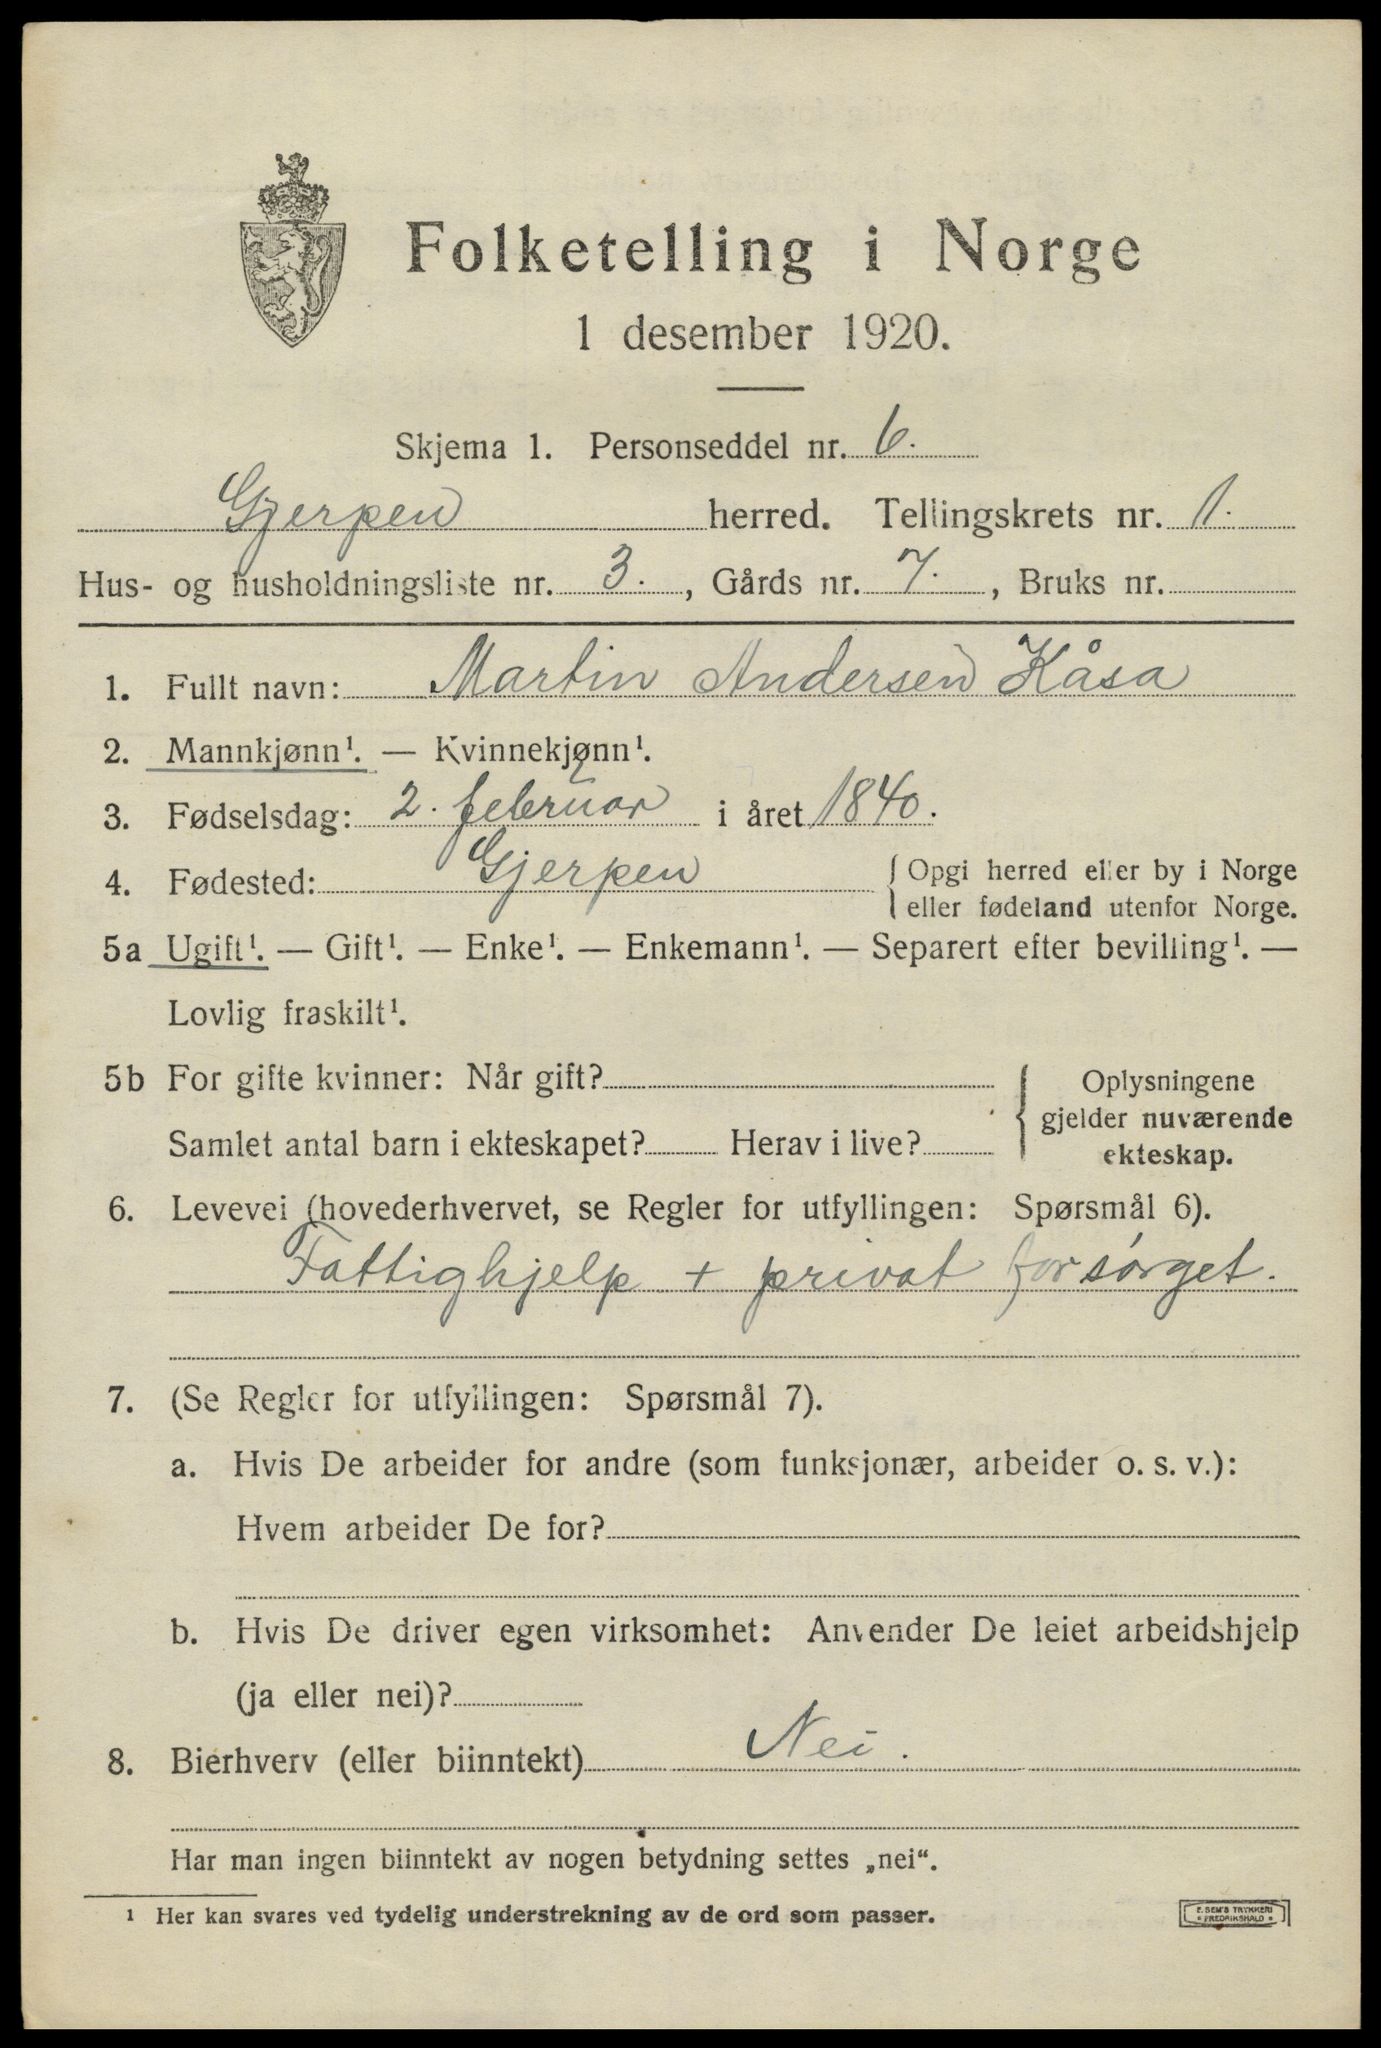 Folketelling i Norge
1 desember 1920.
Skjema 1. Personseddel nr. 6.
Gjerpen herred. Tellingskrets nr. 1.
Hus- og husholdningsliste nr. 3., Gårds nr. 7., Bruks nr.
1. Fullt navn: Martin Andersen Kåsa
2. Mannkjønn¹. — Kvinnekjønn¹.
3. Fødselsdag: 2. februar i året 1840.
4. Fødested: Gjerpen { Opgi herred eller by i Norge
eller fødeland utenfor Norge.
5a Ugift¹. — Gift¹. — Enke¹. — Enkemann¹. — Separert efter bevilling¹. —
Lovlig fraskilt¹.
5b For gifte kvinner: Når gift?
Samlet antal barn i ekteskapet? Herav i live?
{ Oplysningene
gjelder nuværende
ekteskap.
6. Levevei (hovederhvervet, se Regler for utfyllingen: Spørsmål 6).
Fattighjelp + privat forsørget.
7. (Se Regler for utfyllingen: Spørsmål 7).
a. Hvis De arbeider for andre (som funksjonær, arbeider o. s. v.):
Hvem arbeider De for?
b. Hvis De driver egen virksomhet: Anvender De leiet arbeidshjelp
(ja eller nei)?
8. Bierhverv (eller biinntekt) Nei.
Har man ingen biinntekt av nogen betydning settes „nei“.
¹ Her kan svares ved tydelig understrekning av de ord som passer.
E. SEM'S TRYKKERI
• FREDRIKSHALD •